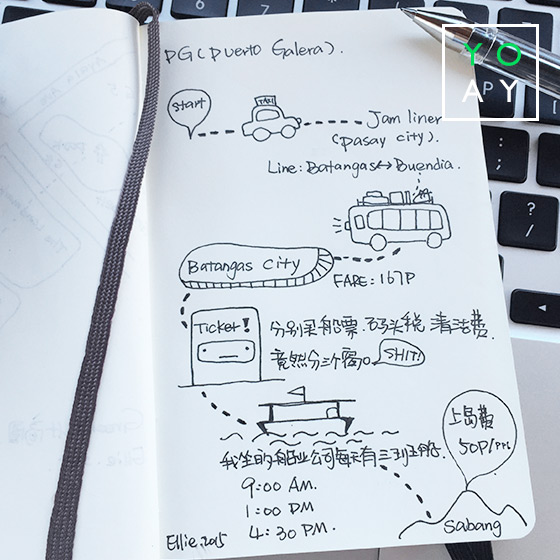 PG (Puerto Galera).
YO
APY
Start
TAXI
Jam liner
(Pasay city).
Line: Batangas↔Buendia.
Batangas City
FARE: 167P
Ticket!
分别买船票.码头税.清洁费.
竟然分三个窗口.
SHIT!
上岛费
50P/PPL
我坐的船业公司每天有三班船.
9:00 AM.
1:00 PM
4:30 PM.
Sabang
Ellie.2015
?
/